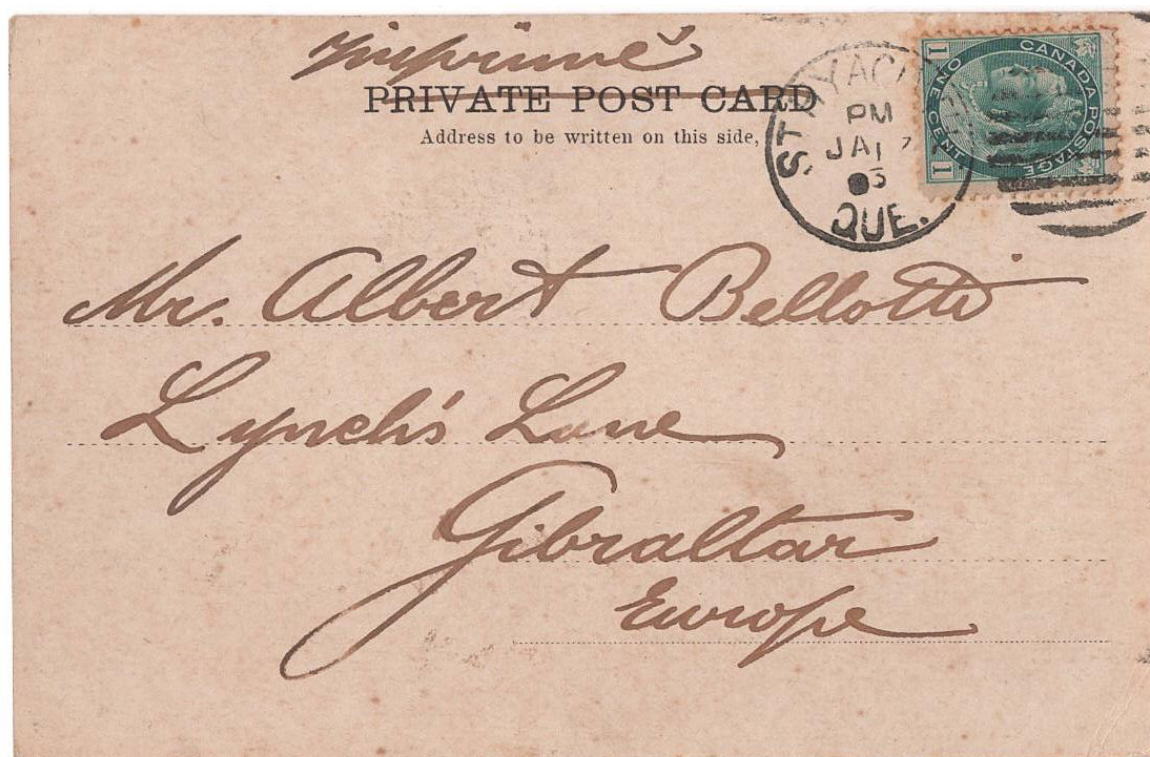 Imprimé
PRIVATE POST CARD
Address to be written on this side,
PM
JA
QUE.
CANADA POSTAGE
ONE CENT
1 1
Mr. Albert Bellotti
Lynch's Lane
Gibraltar
Europe